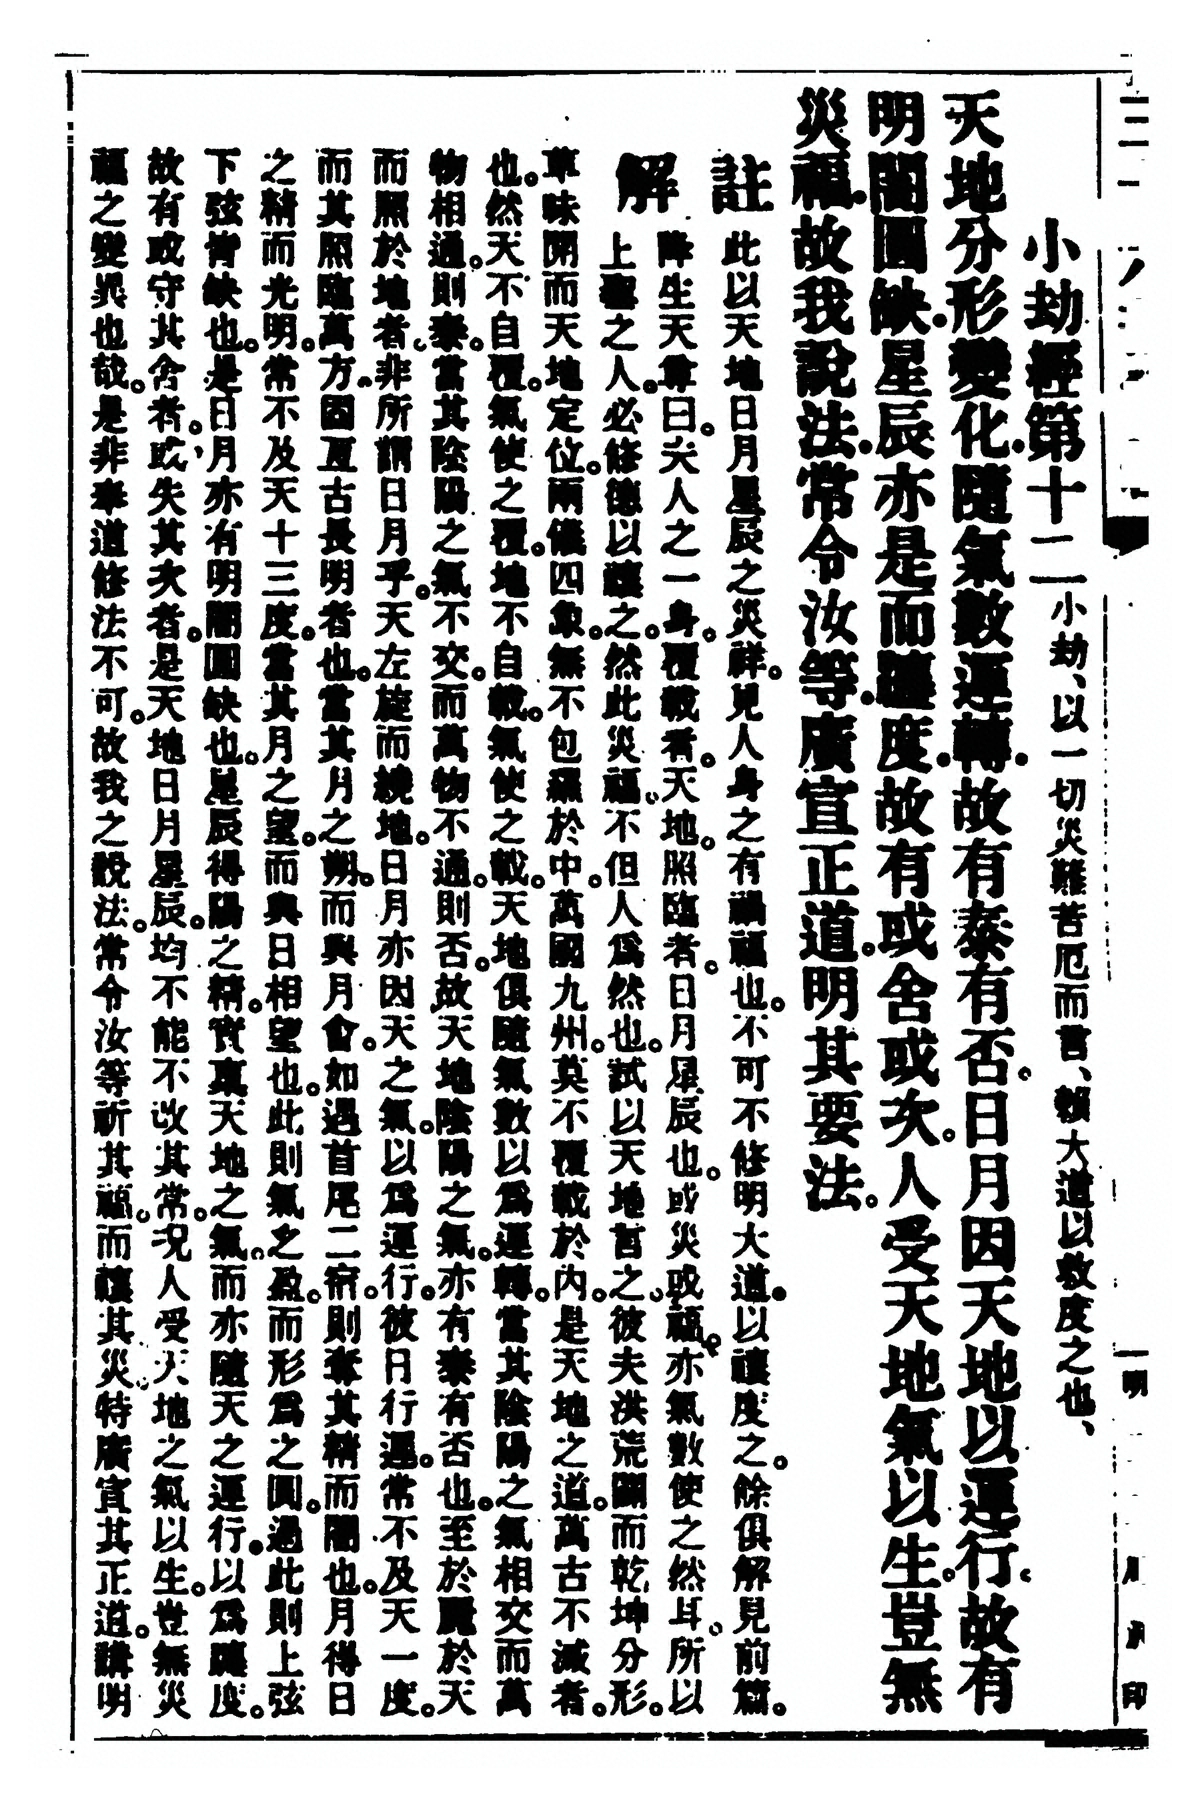 小劫經第十二 小劫、以一切災難苦厄而言、賴大道以救度之也、
天地分形變化。隨氣數運轉。故有泰有否。日月因天地以運行。故有
明闇圓缺。星辰亦是而躔度。故有或舍或次。人受天地氣以生。豈無
災福。故我說法。常令汝等。廣宣正道。明其要法。
註 此以天地日月星辰之災祥。見人身之有禍福也。不可不修明大道。以禳度之。餘俱解見前篇。
降生天尊曰。夫人之一身。覆載者。天地。照臨者。日月星辰也。或災或福。亦氣數使之然耳。所以
解 上聖之人。必修德以禳之。然此災福。不但人為然也。試以天地言之。彼夫洪荒闢而乾坤分形。
草昧開而天地定位。兩儀四象。無不包羅於中。萬國九州。莫不覆載於內。是天地之道。萬古不滅者
也。然天不自覆。氣使之覆。地不自載。氣使之載。天地俱隨氣數以為運轉。當其陰陽之氣相交而萬
物相通。則泰。當其陰陽之氣不交。而萬物不通。則否。故天地陰陽之氣。亦有泰有否也。至於麗於天
而照於地者。非所謂日月乎。天左旋而繞地。日月亦因天之氣。以為運行。彼日行遲。常不及天一度。
而其照臨萬方。固亙古長明者也。當其月之朔。而與月會。如遇首尾二宿。則奪其精而闇也。月得日
之精而光明。常不及天十三度。當其月之望。而與日相望也。此則氣之盈。而形為之圓。過此則上弦
下弦皆缺也。是日月亦有明闇圓缺也。星辰得陽之精。實稟天地之氣。而亦隨天之運行。以為躔度。
故有或守其舍者。或失其次者。是天地日月星辰。均不能不改其常。況人受天地之氣以生。豈無災
福之變異也哉。是非奉道修法不可。故我之說法。常令汝等祈其福。而禳其災。特廣宣其正道。講明